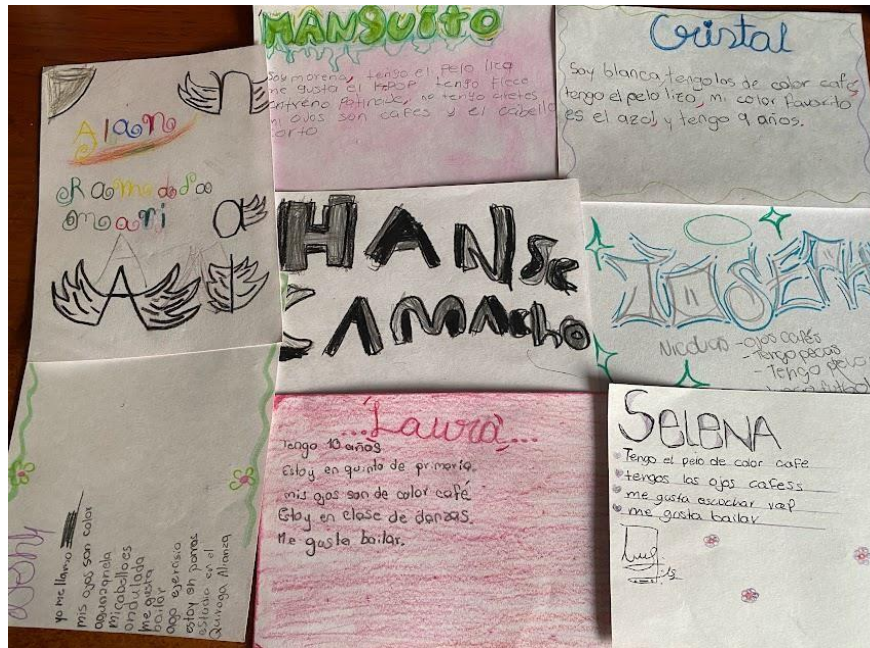 MANGUITO
Soy morena, tengo el pelo lizo
me gusta el KPOP tengo fleco
entreno Patinaje, no tengo aretes
mi ojos son cafes y el cabello
corto
Cristal
Soy blanca, tengo los de color café,
tengo el pelo lizo, mi color favorito
es el azol, y tengo 9 años.
Alan
a
HANS
CAMACHO
JOSEPH
Nicolas - ojos cafés
- Tengo pecas
- Tengo pelo
yo me llamo
mis ojos son color
mi caballo es
ondulada
me gusta
bailar
ago ejersisio
estoy en porras
estudio en el
Quiroga Alianza
...Laura...
Tengo 10 años
Estoy en quinto de primaria.
mis ojos son de color café
Estoy en clase de danzas.
Me gusta bailar.
SELENA
Tengo el pelo de color cafe
tengos las ojos cafess
me gusta escochar rap
me gusta bailar